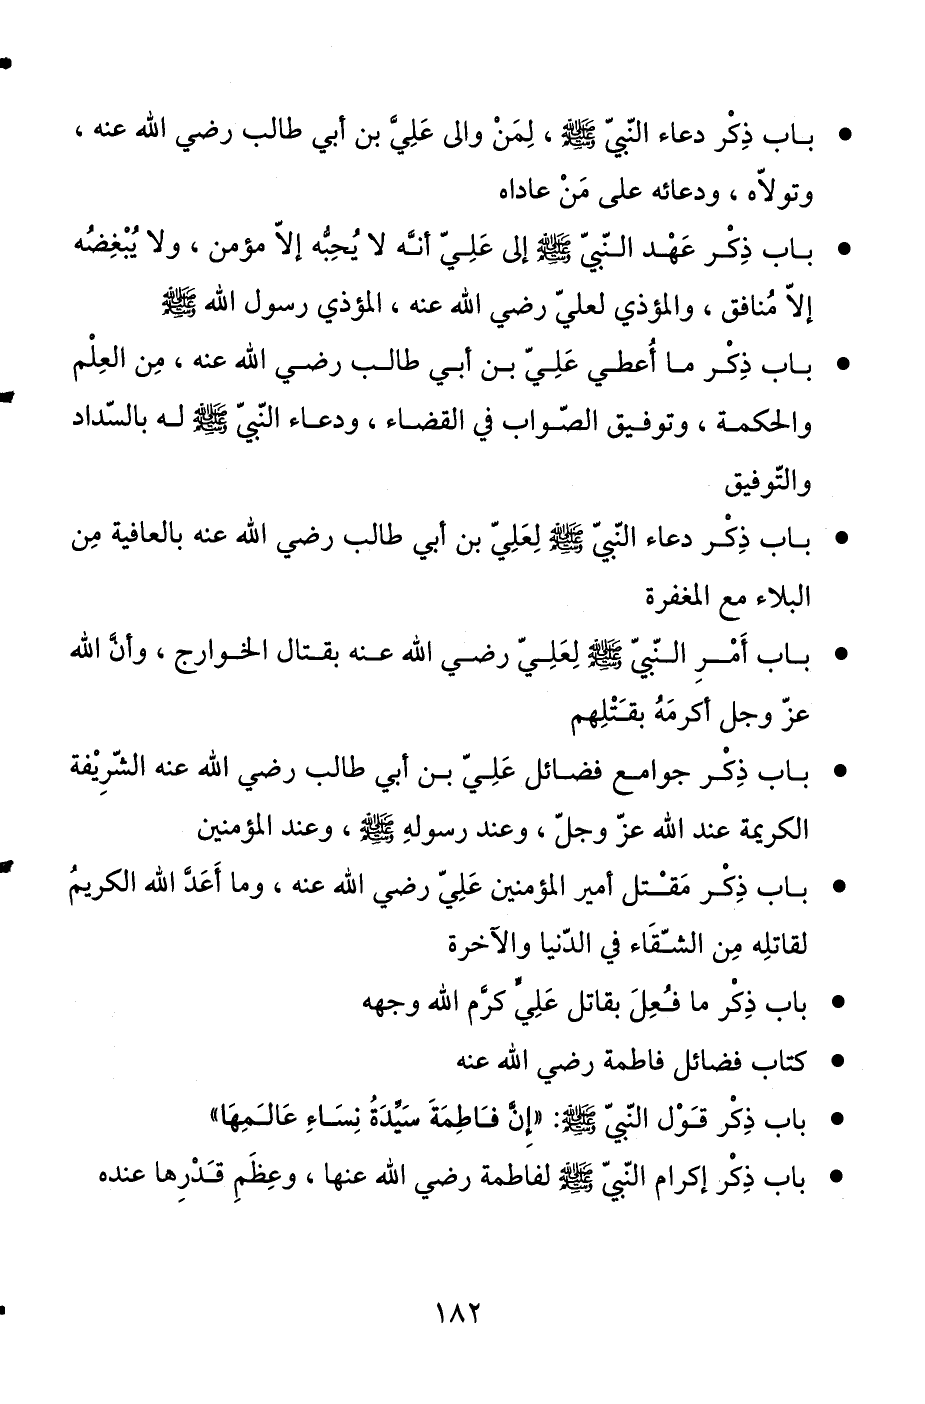 ● بـاب ذِكْر دعاء النّبيّ ﷺ ، لِمَنْ والى عَلِيَّ بن أبي طالب رضي الله عنه ،
وتولاّه ، ودعائه على مَنْ عاداه
● بـاب ذِكْـر عَهْـد الـنّبيّ ﷺ إلى عَلِـيّ أنـَّه لا يُحِبُّه إلاّ مؤمن ، ولا يُبْغِضُه
إلاّ مُنافق ، والمؤذي لعليّ رضي الله عنه ، المؤذي رسول الله ﷺ
● بـاب ذِكْـر مـا أُعطـي عَلِـيّ بـن أبـي طالـب رضـي الله عنه ، مِن العِلْم
والحكمـة ، وتوفـيق الصّـواب في القضـاء ، ودعـاء النّبيّ ﷺ لـه بالسّداد
والتّوفيق
● بـاب ذِكْـر دعاء النّبيّ ﷺ لِعَلِيّ بن أبي طالب رضي الله عنه بالعافية مِن
البلاء مع المغفرة
● بـاب أَمْـرِ الـنّبيّ ﷺ لِعَلِـيّ رضـي الله عـنه بقـتال الخـوارج ، وأنَّ الله
عزّ وجل أكرمَهُ بقـَتْلِهم
● بـاب ذِكْـر جوامـع فضـائل عَلِـيّ بـن أبي طالب رضي الله عنه الشّرِيْفة
الكريمة عند الله عزّ وجلّ ، وعند رسولهِ ﷺ ، وعند المؤمنين
● بـاب ذِكْـر مَقـْتل أمير المؤمنين عَلِيّ رضي الله عنه ، وما أَعَدَّ الله الكريمُ
لقاتلِه مِن الشـّقَاء في الدّنيا والآخرة
● باب ذِكْر ما فـُعِلَ بقاتل عَلِيٍّ كرَّم الله وجهه
● كتاب فضائل فاطمة رضي الله عنه
● باب ذِكْر قـَوْل النّبيّ ﷺ: «إِنَّ فـَاطِمَةَ سَيِّدَةُ نِسَاءِ عَالـَمِهَا»
● باب ذِكْر إكرام النّبيّ ﷺ لفاطمة رضي الله عنها ، وعِظَمِ قـَدْرِها عنده
١٨٢